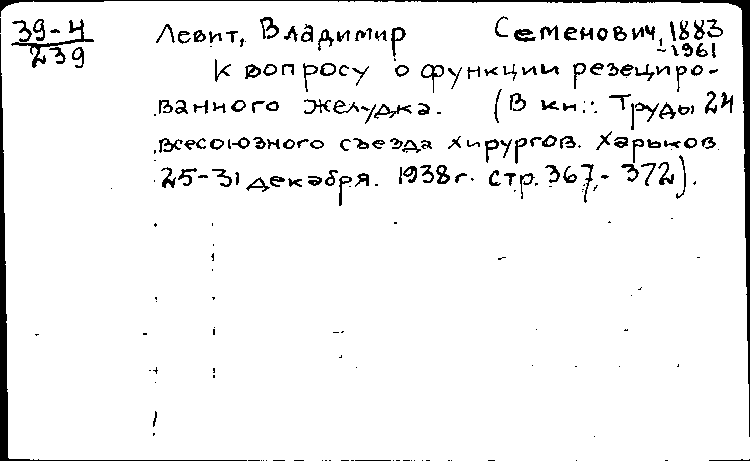 39-4
239
Левит, Владимир Семенович, 1883
-1961
К вопросу о функции резециро-
ванного желудка. (В кн.: Труды 24
всесоюзного съезда хирургов. Харьков
25-31 декабря. 1938г. стр. 367,- 372).